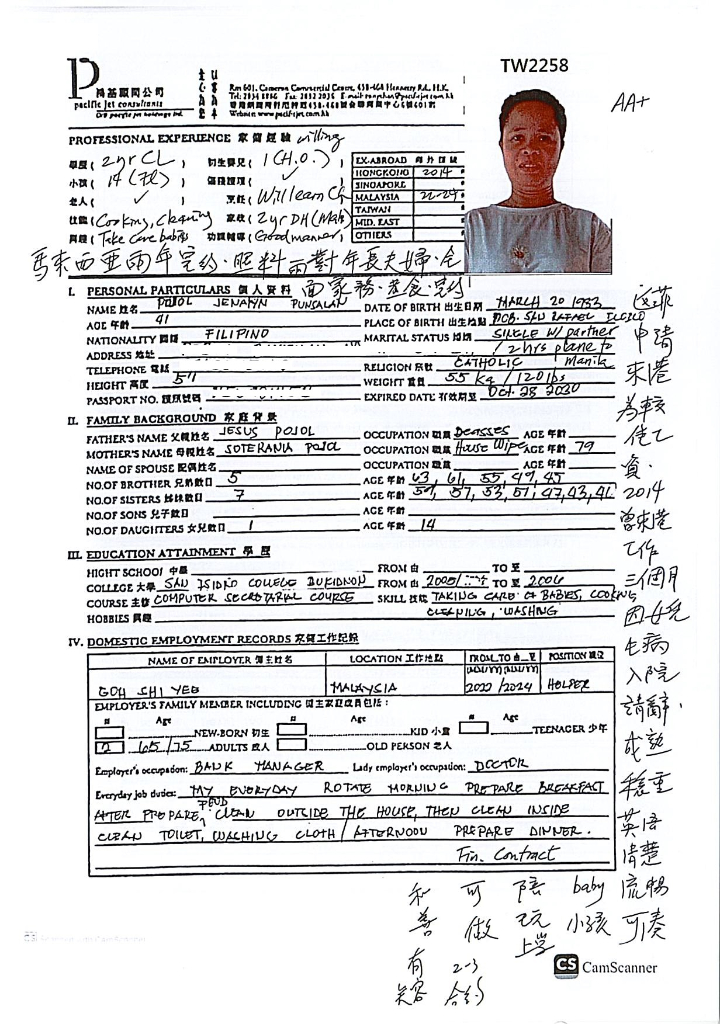 TW2258
AA+
P 鴻基顧問公司
pacific jet consultants
Rm 601, Cameron Commercial Centre, 458-468 Hennessy Rd., H.K.
PROFESSIONAL EXPERIENCE willing
學歷 ( 2yr CL ) 初生嬰兒 ( 1 (H.O.) ) EX-ABROAD
小孩 ( 14 ) ✓ HONGKONG 2014
SINGAPORE
老人 ( ✓ ) 烹飪 ( Will learn ) MALAYSIA 22-24
TAIWAN
( Cooking, cleaning ) 2yr DH MID. EAST
( Take care babies ) ( Good manner ) OTHERS
馬來西亞兩年完約·照料兩對年長夫婦·全
面家務·煮食·完約
I. PERSONAL PARTICULARS 個人資料
NAME 姓名 POJOL JENALYN PUNSALAN DATE OF BIRTH 出生日期 MARCH 20 1983
AGE 年齡 41 PLACE OF BIRTH 出生地點 SAN RAFAEL
NATIONALITY 國籍 FILIPINO MARITAL STATUS 婚姻 SINGLE W/ partner
ADDRESS 地址 / 2 hrs plane to
TELEPHONE 電話 RELIGION 宗教 CATHOLIC Manila
HEIGHT 高度 WEIGHT 重量 55 Kg / 120 lbs
PASSPORT NO. 護照號碼 EXPIRED DATE 有效期至 Oct. 28 2030
II. FAMILY BACKGROUND 家庭背景
FATHER'S NAME 父親姓名 JESUS POJOL OCCUPATION 職業 AGE 年齡
MOTHER'S NAME 母親姓名 SOTERANIA POJOL OCCUPATION 職業 House Wife AGE 年齡 79
NAME OF SPOUSE 配偶姓名 OCCUPATION 職業 AGE 年齡
NO.OF BROTHER 兄弟數目 5 AGE 年齡 63, 61, 55, 49, 45
NO.OF SISTERS 姊妹數目 7 AGE 年齡 59, 57, 53, 51, 47, 43, 41
NO.OF SONS 兒子數目 AGE 年齡
NO.OF DAUGHTERS 女兒數目 1 AGE 年齡 14
III. EDUCATION ATTAINMENT 學歷
HIGHT SCHOOL 中學 FROM 由 TO 至
COLLEGE 大學 SAN ISIDRO COLLEGE BUKIDNON FROM 由 TO 至 2006
COURSE 主修 COMPUTER SECRETARIAL COURSE SKILL 技能 TAKING CARE OF BABIES, COOKING
HOBBIES 興趣 CLEANING, WASHING
IV. DOMESTIC EMPLOYMENT RECORDS 家傭工作記錄
NAME OF EMPLOYER 僱主姓名 LOCATION 工作地點 FROM...TO 由...至 POSITION 職位
GOH SHI YEE MALAYSIA 2022 / 2024 HELPER
EMPLOYER'S FAMILY MEMBER INCLUDING 僱主家庭成員包括 :
# Age # Age # Age
NEW-BORN 初生 KID 小童 TEENAGER 少年
2 65/75 ADULTS 成人 OLD PERSON 老人
Employer's occupation: BANK MANAGER Lady employer's occupation: DOCTOR
Everyday job duties: MY EVERYDAY ROTATE MORNING PREPARE BREAKFAST
AFTER PREPARE, CLEAN OUTSIDE THE HOUSE, THEN CLEAN INSIDE
CLEAN TOILET, WASHING CLOTH / AFTERNOON PREPARE DINNER.
Fin. Contract
返菲
申請
來港
2014
曾來港
工作
三個月
因女兒
生病
入院
請辭·
成熟
穩重
英語
清楚
流暢
和善有笑容
可做 2-3 合約
陪玩上學
baby 小孩
CS CamScanner